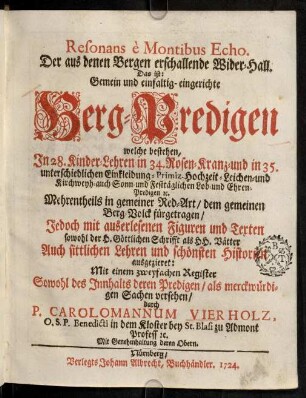 Resonans è Montibus Echo.
Der aus denen Bergen erschallende Wider-Hall.
Das ist:
Gemein und einfältig-eingerichte
Berg-Predigen
welche bestehen,
In 28. Kinder-Lehren in 34. Rosen-Kranz- und in 35.
unterschiedlichen Einkleidung-Primiz-Hochzeit-Leichen-und
Kirchweyh-auch Sonn und Festtäglichen Lob und Ehren-
Predigen ꝛc.
Mehrentheils in gemeiner Red-Art/ dem gemeinen
Berg Volck fürgetragen/
Jedoch mit auserlesenen Figuren und Texten
sowohl der H. Göttlichen Schrifft als HH. Vätter
Auch sittlichen Lehren und schönsten Historien
ausgezieret:
Mit einem zweyfachen Register
Sowohl des Innhalts deren Predigen/ als merckwürdi-
gen Sachen versehen/
durch
P. CAROLOMANNUM VIERHOLZ,
O. S. P. Benedicti in dem Kloster bey St. Blasi zu Admont
Profess ꝛc.
Mit Genehmhaltung deren Obern.
Nürnberg/
Verlegts Johann Albrecht, Buchhändler. 1724.